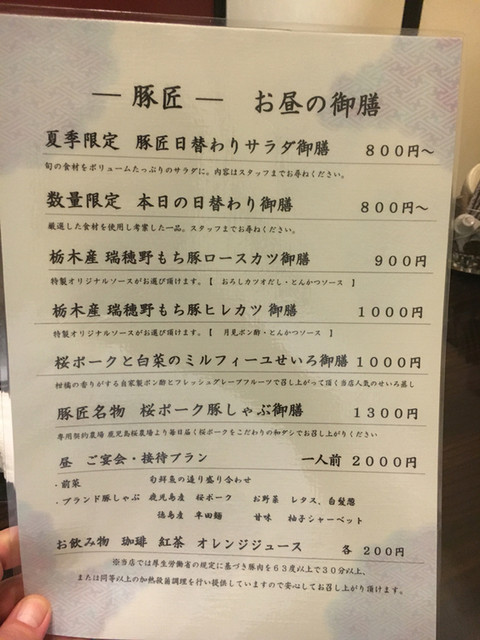 ― 豚匠 ― お昼の御膳
夏季限定 豚匠日替わりサラダ御膳 800円～
旬の食材をボリュームたっぷりのサラダに。内容はスタッフまでお尋ねください。
数量限定 本日の日替わり御膳 800円～
厳選した食材を使用し考案した一品。スタッフまでお尋ねください。
栃木産 瑞穂野もち豚ロースカツ御膳 900円
特製オリジナルソースがお選び頂けます。【 おろしカツオだし・とんかつソース 】
栃木産 瑞穂野もち豚ヒレカツ 御膳 1000円
特製オリジナルソースがお選び頂けます。【 月見ポン酢・とんかつソース 】
桜ポークと白菜のミルフィーユせいろ御膳 1000円
柑橘の香りがする自家製ポン酢とフレッシュグレープフルーツで召し上がって頂く当店人気のせいろ蒸し
豚匠名物 桜ポーク豚しゃぶ御膳 1300円
専用契約農場 鹿児島桜農場より毎日届く桜ポークをこだわりの和ダシでお召し上がりください
昼 ご宴会・接待プラン 一人前 2000円
・前菜 旬鮮魚の造り盛り合わせ
・ブランド豚しゃぶ 鹿児島産 桜ポーク お野菜 レタス、白髪葱
徳島産 半田麺 甘味 柚子シャーベット
お飲み物 珈琲 紅茶 オレンジジュース 各 200円
※当店では厚生労働省の規定に基づき豚肉を63度以上で30分以上、
または同等以上の加熱殺菌調理を行い提供していますので安心してお召し上がり頂けます。